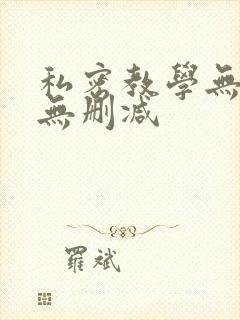 私密教學無
無刪減
羅斌